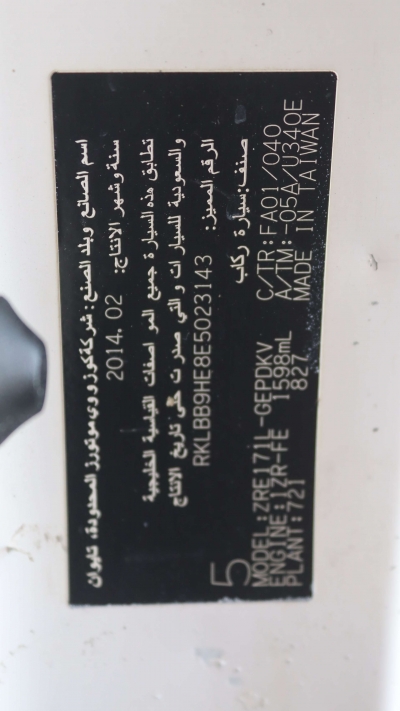 اسم الصانع وبلد الصنع: شركة كوزووي موتورز المحدودة، تايوان
سنة وشهر الانتاج: 2014. 02
تطابق هذه السيارة جميع المواصفات القياسية الخليجية
والسعودية للسيارات والتي صدرت حتى تاريخ الانتاج
الرقم المميز: RKLBB9HE8E5023143
صنف: سيارة ركاب
5
MODEL:ZRE171L-GEPDKV C/TR:FA01/040
ENGINE:1ZR-FE 1598mL A/TM:-05A/U340E
PLANT:721 827 MADE IN TAIWAN